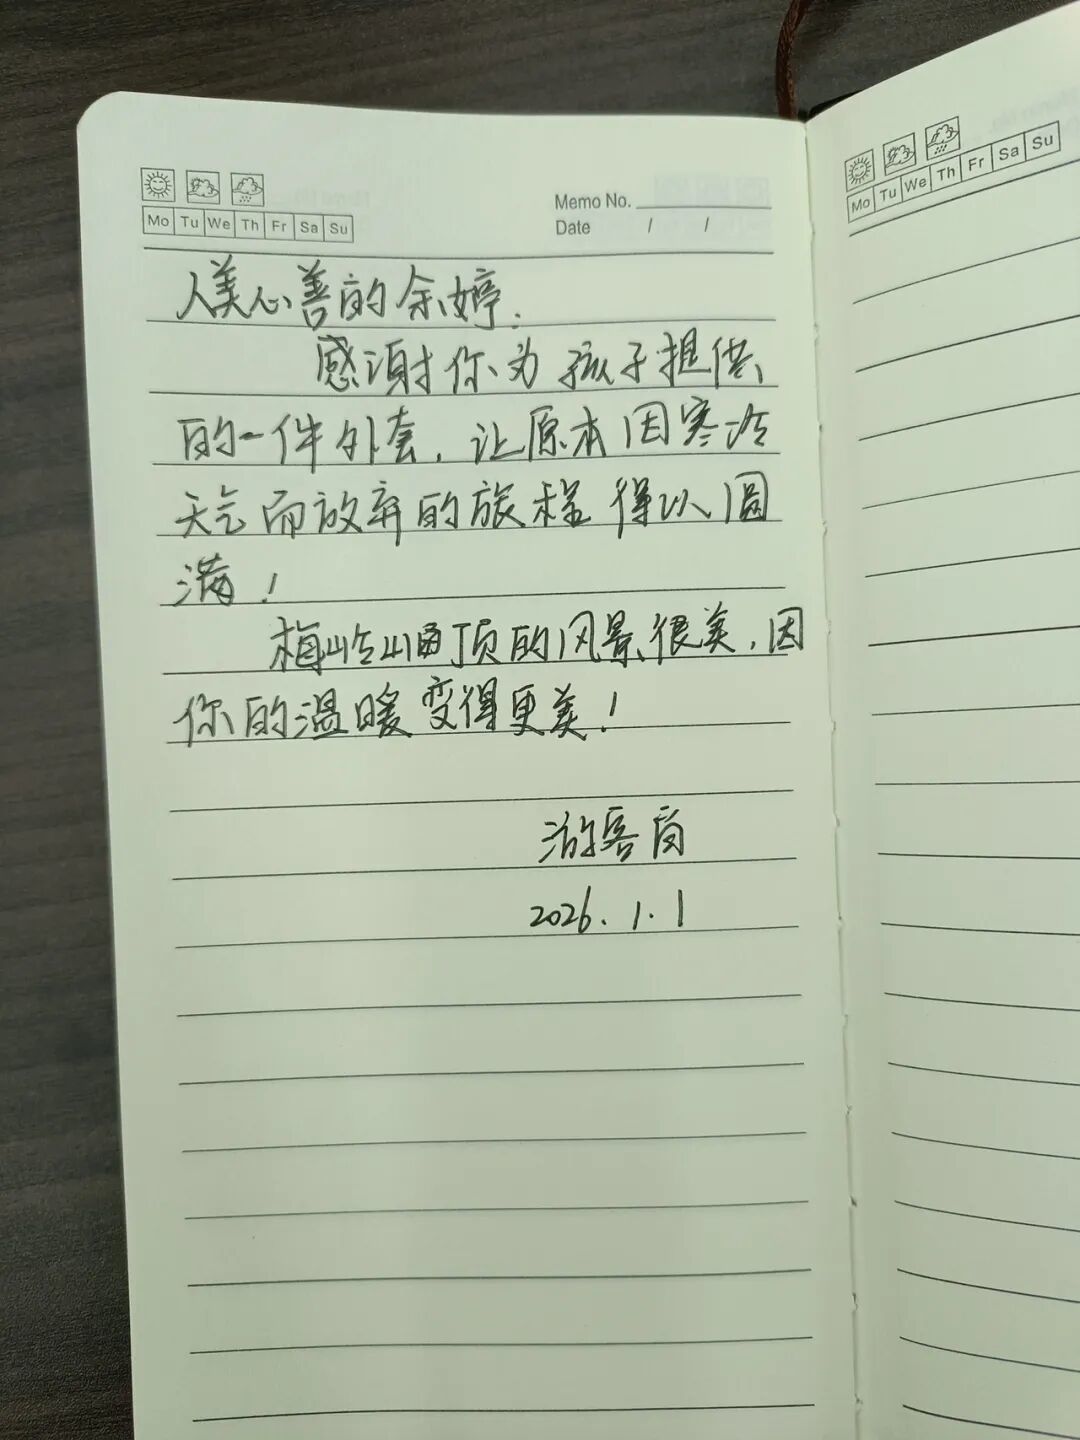 Mo Tu We Th Fr Sa Su
Memo No.
Date / /
人美心善的余婷.
感谢你为孩子提供
的一件外套，让原本因寒冷
天气而放弃的旅程得以圆
满！
梅岭山顶的风景很美，因
你的温暖变得更美！
游客
2026.1.1
Mo Tu We Th Fr Sa Su